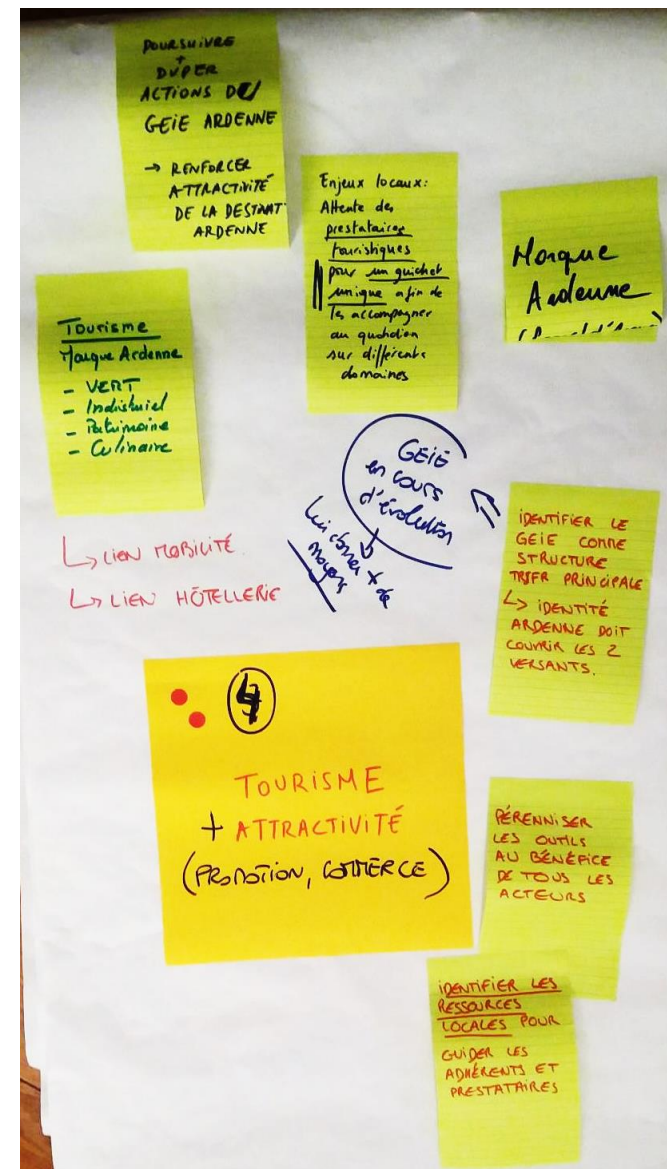 POURSUIVRE
+
DVPER
ACTIONS DU
GEIE ARDENNE
→ RENFORCER
ATTRACTIVITÉ
DE LA DESTINAT°
ARDENNE
Enjeux locaux:
Attente des
prestataires
touristiques
pour un guichet
unique afin de
les accompagner
au quotidien
sur différents
domaines
Marque
Ardenne
Tourisme
Marque Ardenne
- VERT
- Industriel
- Patrimoine
- Culinaire
GEIE
en cours
d'évolution
Lui donner + de
moyens
↳ LIEN MOBILITÉ
↳ LIEN HÔTELLERIE
IDENTIFIER LE
GEIE COMME
STRUCTURE
TRSFR PRINCIPALE
↳ IDENTITÉ
ARDENNE DOIT
COUVRIR LES 2
VERSANTS.
4
TOURISME
+ ATTRACTIVITÉ
(PROMOTION, COMMERCE)
PÉRENNISER
LES OUTILS
AU BÉNÉFICE
DE TOUS LES
ACTEURS
IDENTIFIER LES
RESSOURCES
LOCALES POUR
GUIDER LES
ADHÉRENTS ET
PRESTATAIRES